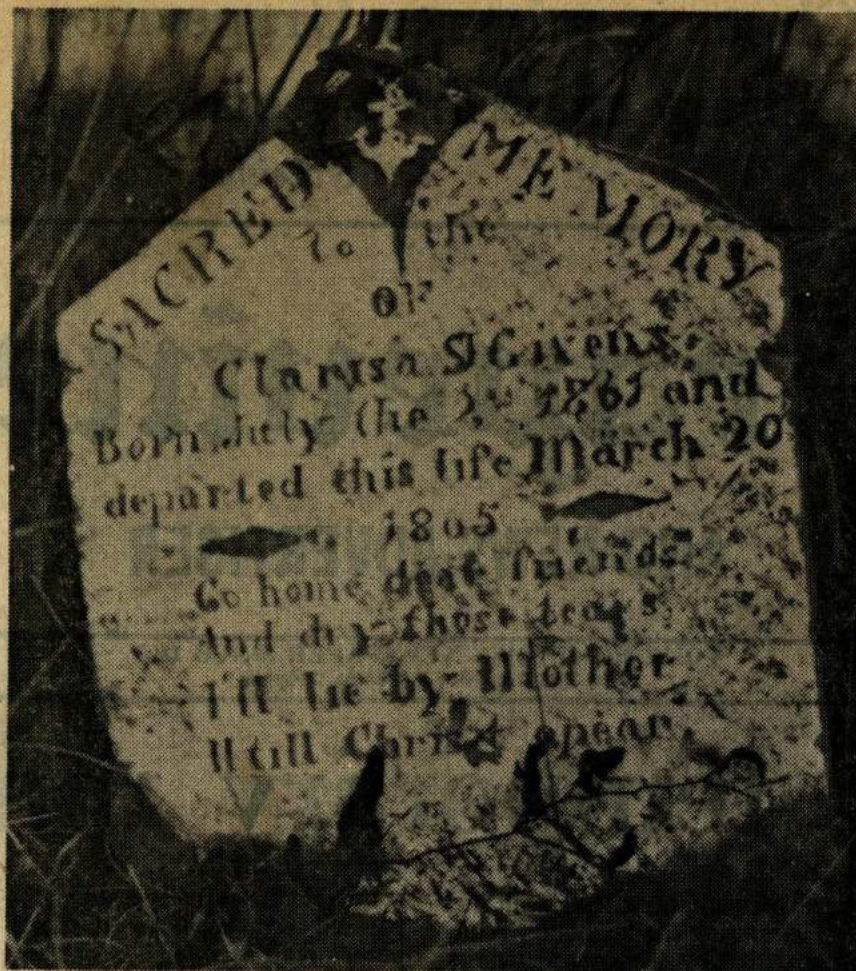 SACRED To the MEMORY
OF
Clarisa S Givens
Born July the 3rd 1861 and
departed this life March 20
1865
Go home dear friends
And dry those tears
I'll lie by Mother
Till Christ apear